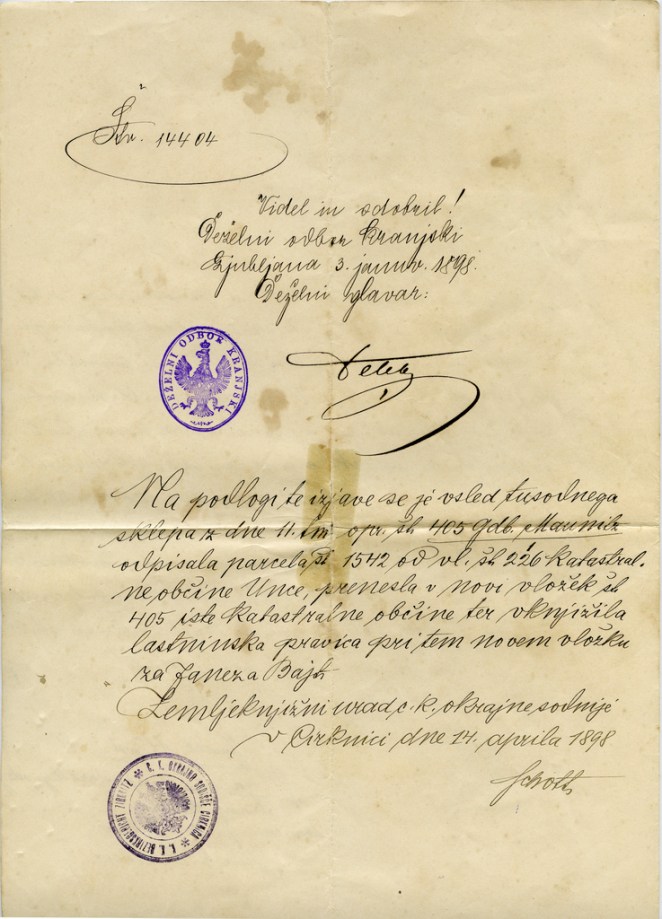 Štv. 14404
Videl in odobril!
Deželni odbor kranjski
Ljubljana 3. januv. 1898.
Deželni glavar:
DEŽELNI ODBOR KRANJSKI
Na podlogi te izjave se je vsled tusodnega
sklepa z dne 11. tm opr. št 405 Gdb. Maunitz
odpisala parcela št 1542 od vl. št 226 katastral-
ne občine Unce, prenesla v novi vložek št
405 iste katastralne občine ter vknjižila
lastninska pravica pri tem novem vložku
za Janeza Bajt
Zemljeknjižni urad c. k. okrajne sodnije
v Cirknici dne 14. aprila 1898